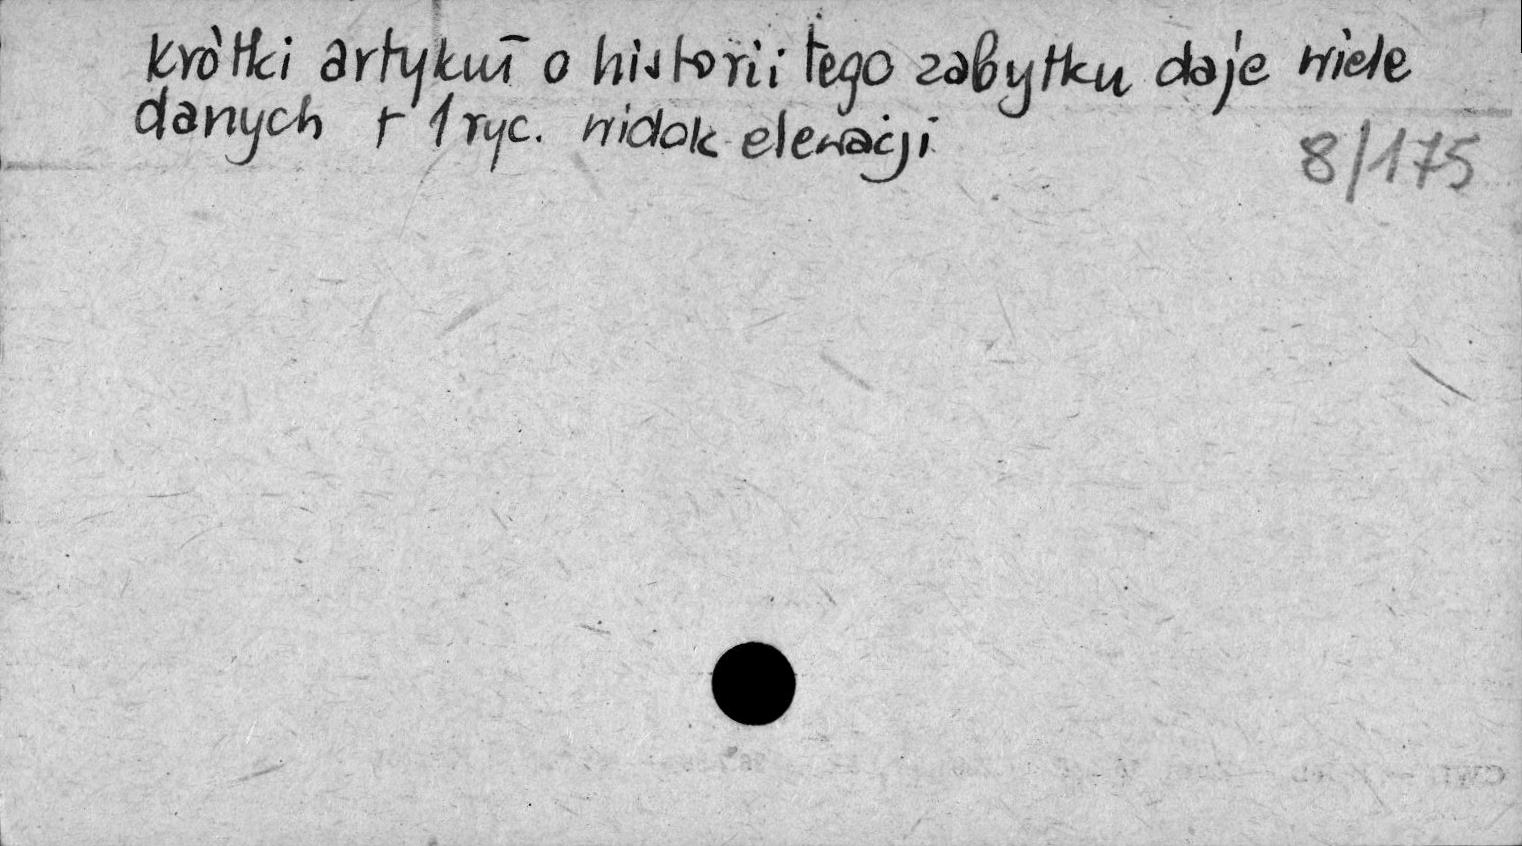 krótki artykuł o historii tego zabytku daje wiele
danych + 1 ryc. widok elewacji
8/175